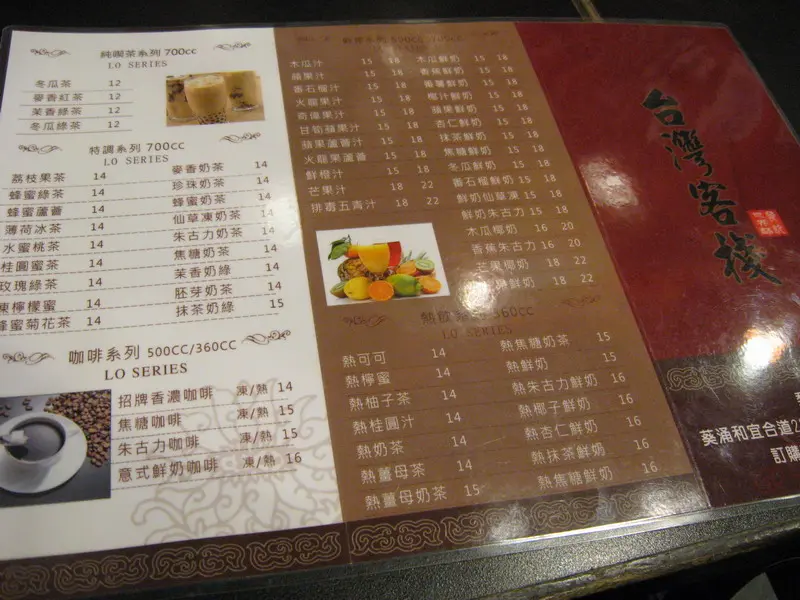 純喫茶系列 700cc
LO SERIES
冬瓜茶 12
麥香紅茶 12
茉香綠茶 12
冬瓜綠茶 12
特調系列 700cc
LO SERIES
荔枝果茶 14
蜂蜜綠茶 14
蜂蜜蘆薈 14
薄荷冰茶 14
水蜜桃茶 14
桂圓蜜茶 14
玫瑰綠茶 14
凍檸檬蜜 14
蜂蜜菊花茶 14
麥香奶茶 14
珍珠奶茶 14
蜂蜜奶茶 14
仙草凍奶茶 14
朱古力奶茶 14
焦糖奶茶 14
茉香奶綠 14
胚芽奶茶 14
抹茶奶綠 15
咖啡系列 500CC/360CC
LO SERIES
招牌香濃咖啡 凍/熱 14
焦糖咖啡 凍/熱 15
朱古力咖啡 凍/熱 15
意式鮮奶咖啡 凍/熱 16
木瓜汁 15 18
蘋果汁 15 18
番石榴汁 15 18
火龍果汁 15 18
奇偉果汁 15 18
甘筍蘋果汁 15 18
蘋果蘆薈汁 15 18
火龍果蘆薈 15 18
鮮橙汁 15 18
芒果汁 18 22
排毒五青汁 18 22
木瓜鮮奶 15 18
香蕉鮮奶 15 18
番薯鮮奶 15 18
椰汁鮮奶 15 18
蘋果鮮奶 15 18
杏仁鮮奶 15 18
抹茶鮮奶 15 18
焦糖鮮奶 15 18
冬瓜鮮奶 15 18
番石榴鮮奶 15 18
鮮奶仙草凍 15 18
鮮奶朱古力 15 18
木瓜椰奶 16 20
香蕉朱古力 16 20
芒果椰奶 18 22
鮮奶 18 22
熱飲系列 360cc
LO SERIES
熱可可 14
熱檸蜜 14
熱柚子茶 14
熱桂圓汁 14
熱奶茶 14
熱薑母茶 14
熱薑母奶茶 15
熱焦糖奶茶 15
熱鮮奶 15
熱朱古力鮮奶 16
熱椰子鮮奶 16
熱杏仁鮮奶 16
熱抹茶鮮奶 16
熱焦糖鮮奶 16
台灣客棧
葵涌和宜合道2
訂購